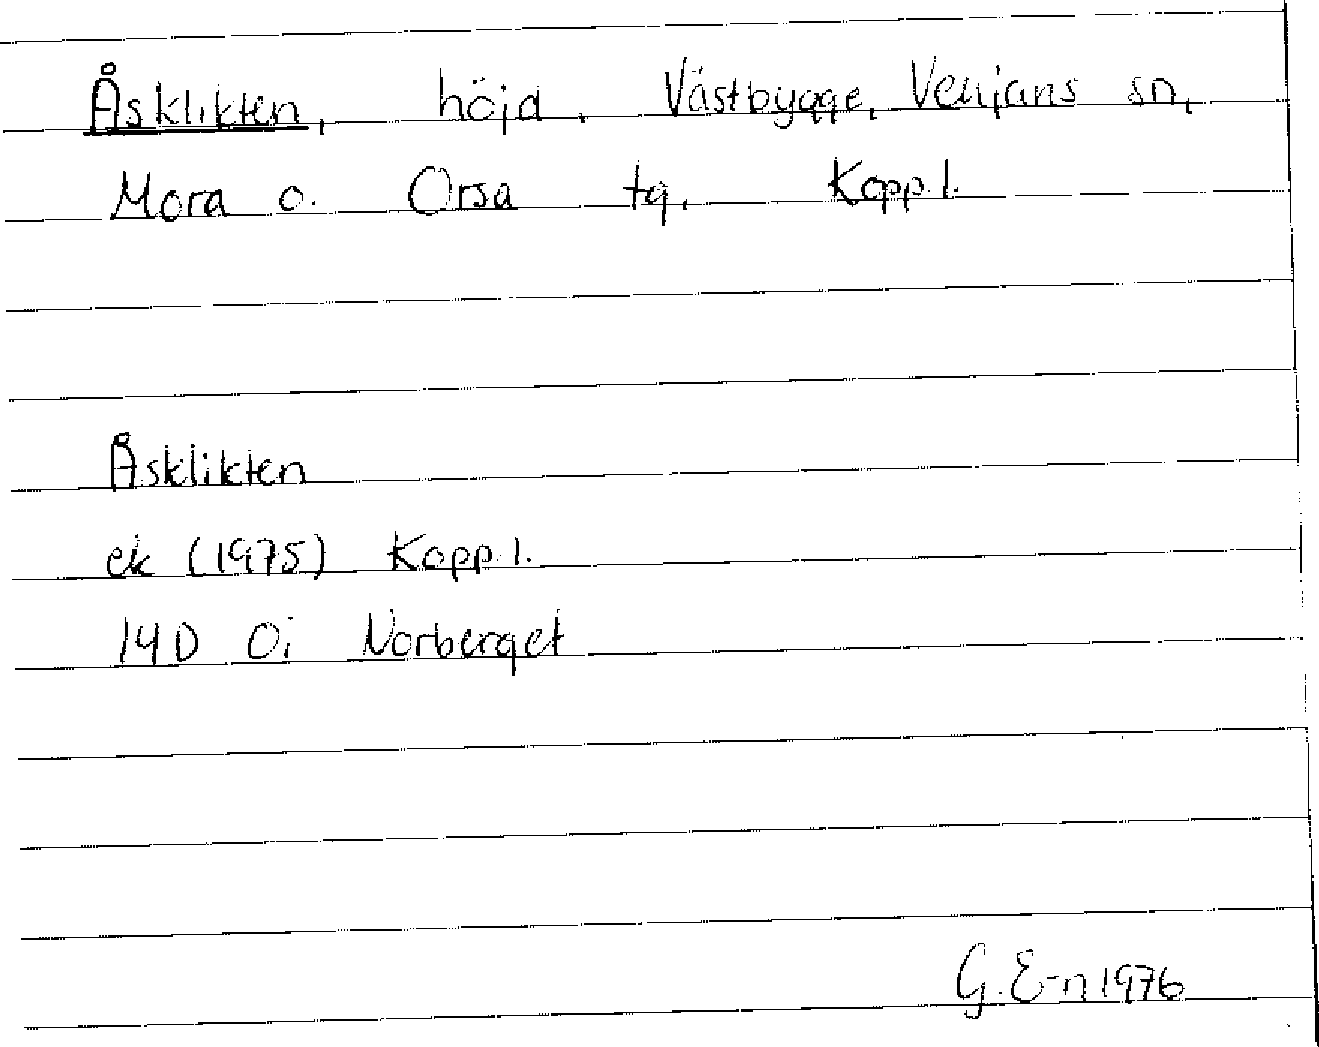 Åsklikten, höjd, Västbygge, Venjans sn,
Mora o. Orsa tg, Kopp.l.
Åsklikten
ek (1975) Kopp.l.
14D 0i Norberget
G.E-n 1976